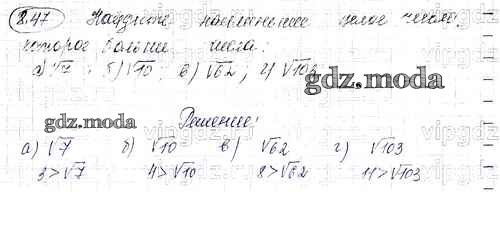 8.47 Найдите наименьшее целое число,
которое больше числа:
а) √7; б) √10; в) √62; г) √103
gdz.moda
gdz.moda
Решение:
а) √7 б) √10 в) √62 г) √103
3>√7 4>√10 8>√62 11>√103